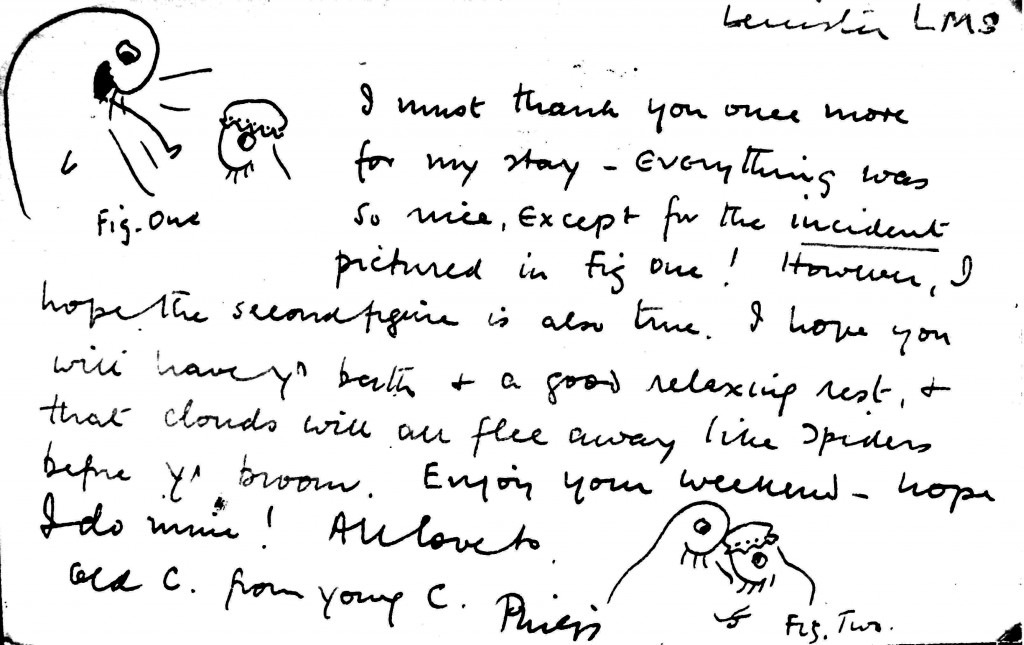 Leicester LMS
I must thank you once more
for my stay – Everything was
so nice, Except for the incident
Fig. One
pictured in Fig One! However, I
hope the second figure is also true. I hope you
will have yr bath & a good relaxing rest, &
that clouds will all flee away like spiders
before yr broom. Enjoy your weekend – hope
I do mine! All love to
Old C. from young C.
Fig. Two.